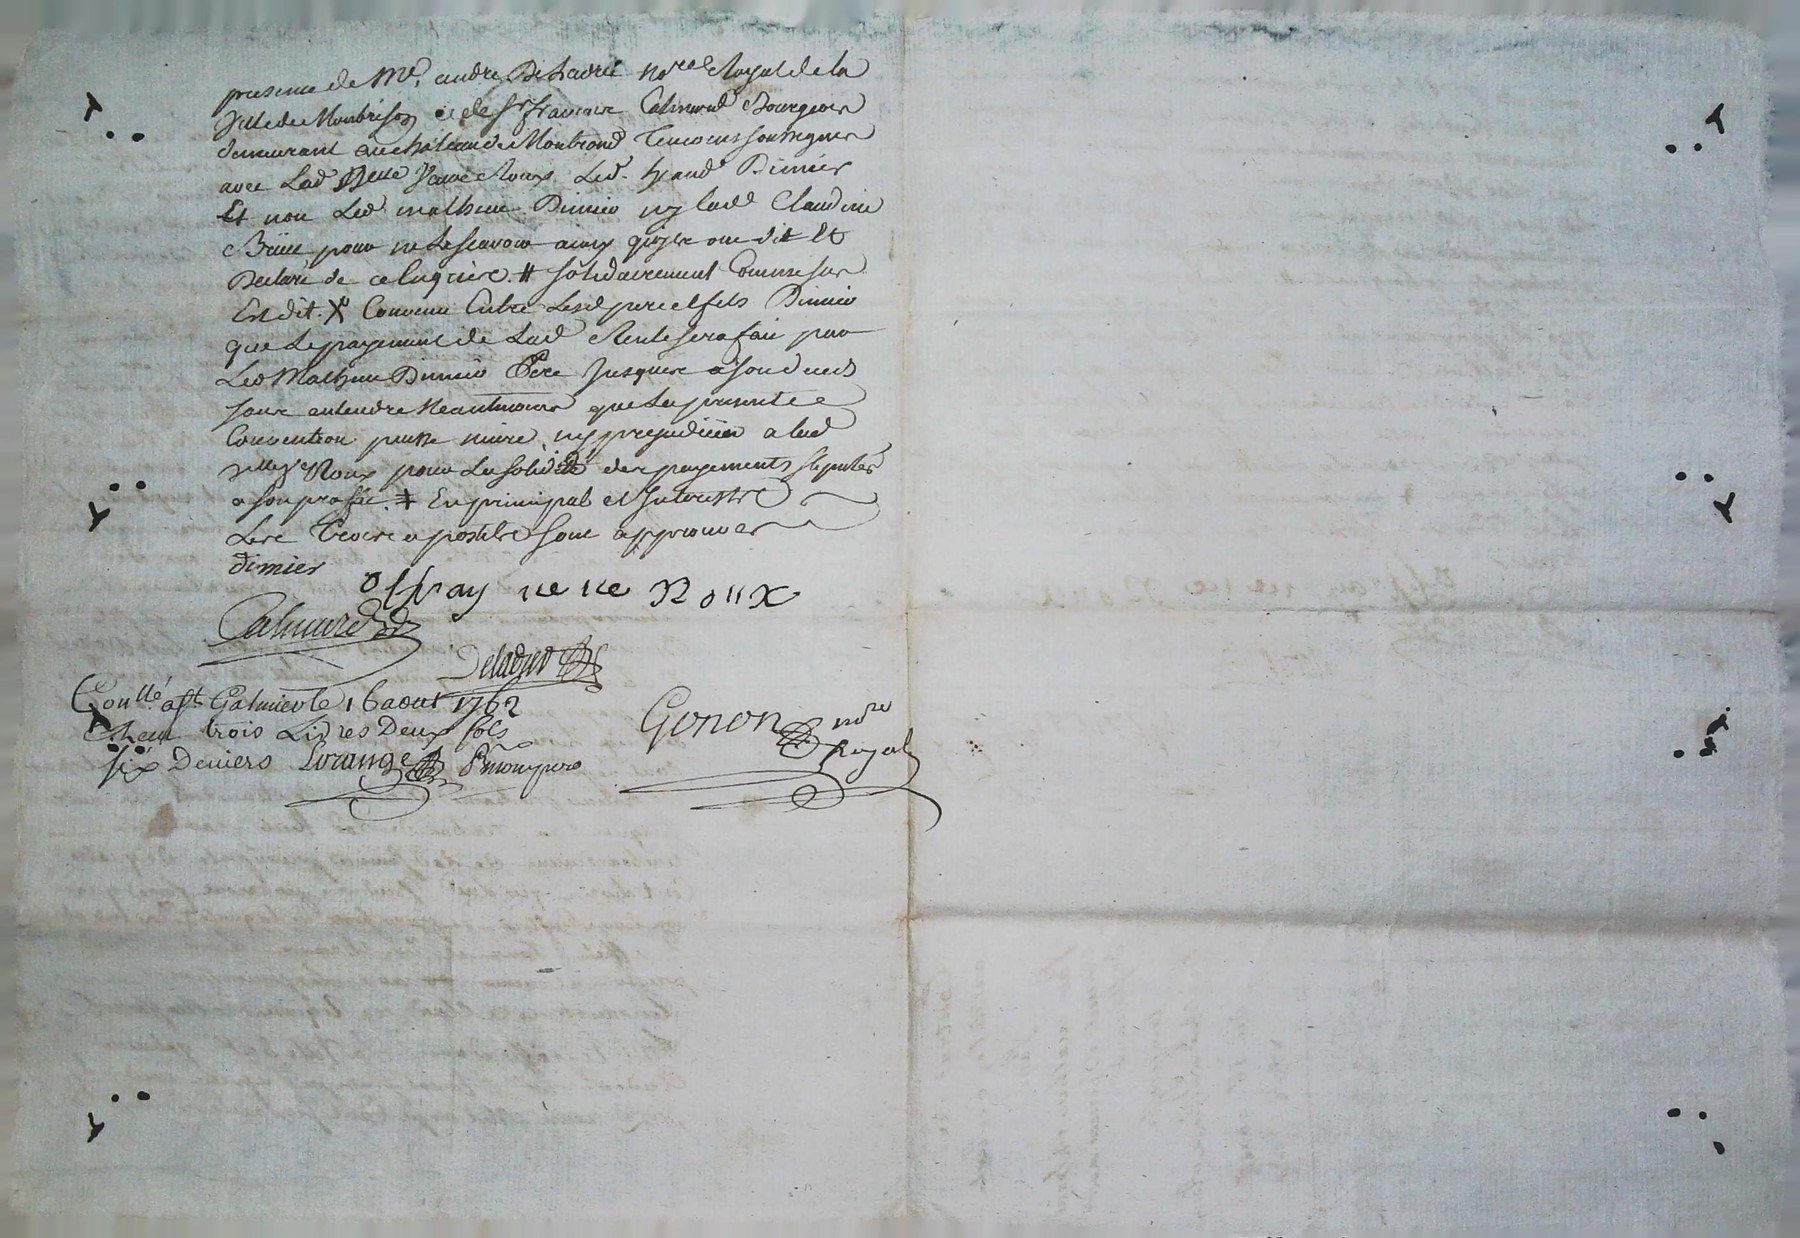 presence de Me. andre Deladret nore Royal de la
Ville de Montbrison et de sr francois Calmard Bourgeois
demeurant au chateau de Montrond Temoins soussignes
avec Lad Roux Led. Dimier
Et non Led mathieu Dimier ny lad Claudine
pour ne le scavoir ainsy qu'ils ont dit Et
Declaré de ce Enquis. # solidairement Comme sus
Est dit. X Convenu Entre Lesd pere et fils Dimier
que Le payement de Lad Rente sera fait par
Led Mathieu Dimier Pere Jusques a son deces
sans entendre Neantmoins que La presente
Convention puisse nuire ny prejudicier a lad
Roux pour La solidité des payements stipulés
a son profit. ‡ En principal et Interests
Les Trois apostiles sont approuves
dimier
Roux
Calmard
Deladret
Conllé a st Galmier le 16 aout 1762
trois Livres Deux sols
six Deniers
Gonon nore
Royal